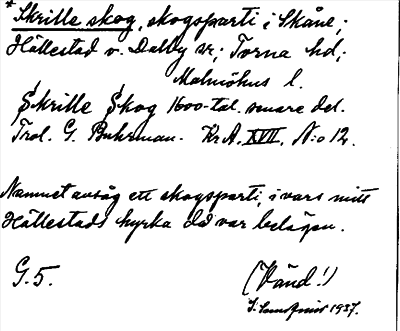 * Skrille skog, skogsparti i Skåne;
Hällestad v. Dalby sn; Torna hd;
Malmöhus l.
Skrille Skog 1600-tal. senare del.
Trol. G. Buhrman. Kr.A. XVII, N:o 12.
Namnet avsåg ett skogsparti, i vars mitt
Hällestads kyrka då var belägen.
G. 5.
(Vänd!)
1937.